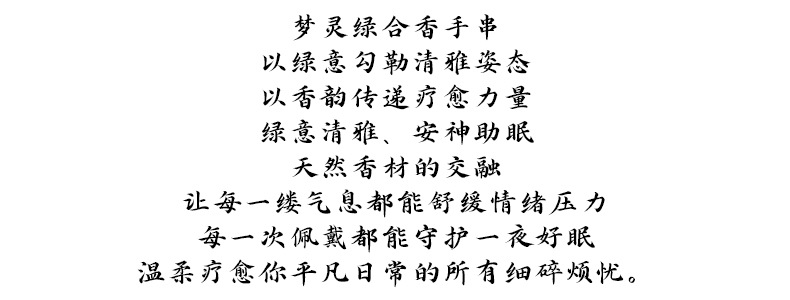 梦灵绿合香手串
以绿意勾勒清雅姿态
以香韵传递疗愈力量
绿意清雅、安神助眠
天然香材的交融
让每一缕气息都能舒缓情绪压力
每一次佩戴都能守护一夜好眠
温柔疗愈你平凡日常的所有细碎烦忧。